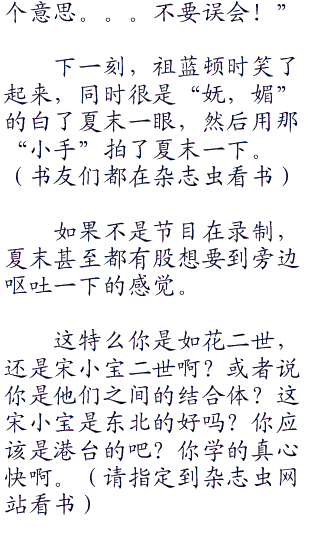 个意思。。。不要误会！”
下一刻，祖蓝顿时笑了
起来，同时很是“妩，媚”
的白了夏末一眼，然后用那
“小手”拍了夏末一下。
（书友们都在杂志虫看书）
如果不是节目在录制，
夏末甚至都有股想要到旁边
呕吐一下的感觉。
这特么你是如花二世，
还是宋小宝二世啊？或者说
你是他们之间的结合体？这
宋小宝是东北的好吗？你应
该是港台的吧？你学的真心
快啊。（请指定到杂志虫网
站看书）